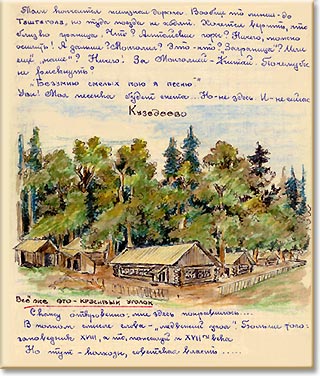 Там кончается железная дорога. Вообще-то линия - до
Таштагола, но туда поезда не ходят. Хочется верить, что
близко граница. Что? Алтайские горы? Ничего, можно
осилить! А дальше? Монголия? Это - что? Заграница? Или
ещё „наше“? Ничего. За Монголией - Китай. Почему бы
не рискнуть?
„Безумию смелых пою я песню“
Увы! Моя песенка будет спета... Но - не здесь. И - не сейчас
Кузедеево
Всё же это - красивый уголок
Скажу откровенно: мне здесь понравилось....
В полном смысле слова - „медвежий угол“. Больше того:
заповедник XVIII, а то, пожалуй и XVII-го века
Но тут - колхоз, советская власть .....